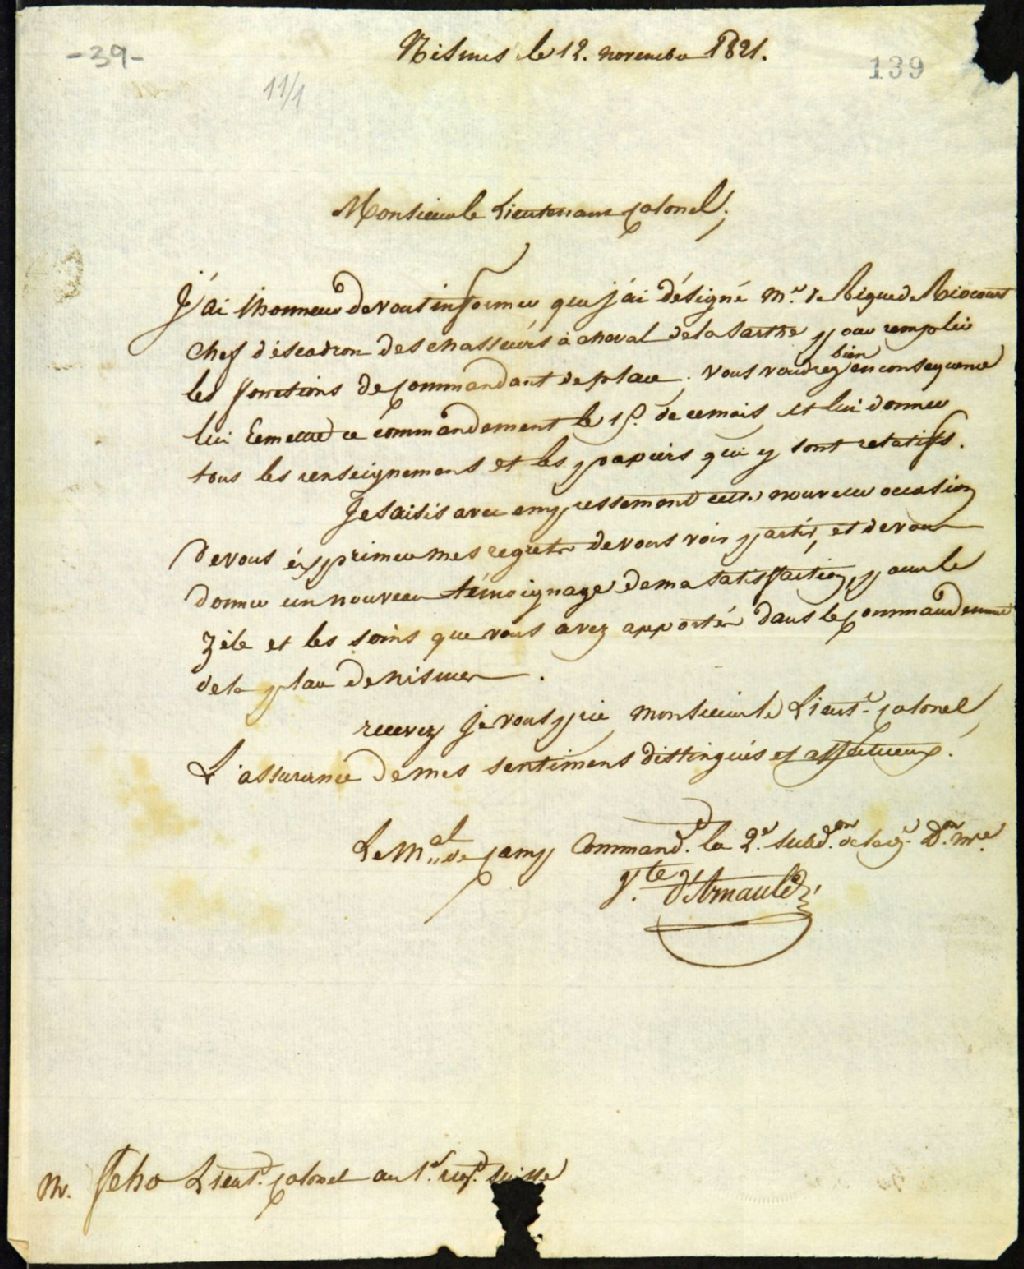 -39-
Nismes le 12. novembre 1821.
139
11/1
Monsieur le Lieutenant Colonel,
J'ai l'honneur de vous informer que j'ai désigné Mr. de Rigue de Riocourt
chef d'éscadron des chasseurs à cheval de la Sarthe pour remplir
les fonctions de Commandant de place. Vous voudrez bien en consequence
lui remettre ce commandement le 15. de ce mois et lui donner
tous les renseignemens et les papiers qui y sont relatifs.
Je saisis avec empressement cette nouvelle occasion
de vous éxprimer mes regrets de vous voir partir, et de vous
donner un nouveau témoignage de ma satisfaction, pour le
zèle et les soins que vous avez apportés dans le Commandement
de la place de Nismes.
recevez je vous prie, Monsieur le Lieutt. Colonel,
L'assurance de mes sentimens distingués et affectueux.
Le Mal. de Camp Commandt. la 2e. subdon. de la 9e. Don. Mre.
Vte. d'Arnauld
M. Lieutt. Colonel au 1er. regt. suisse